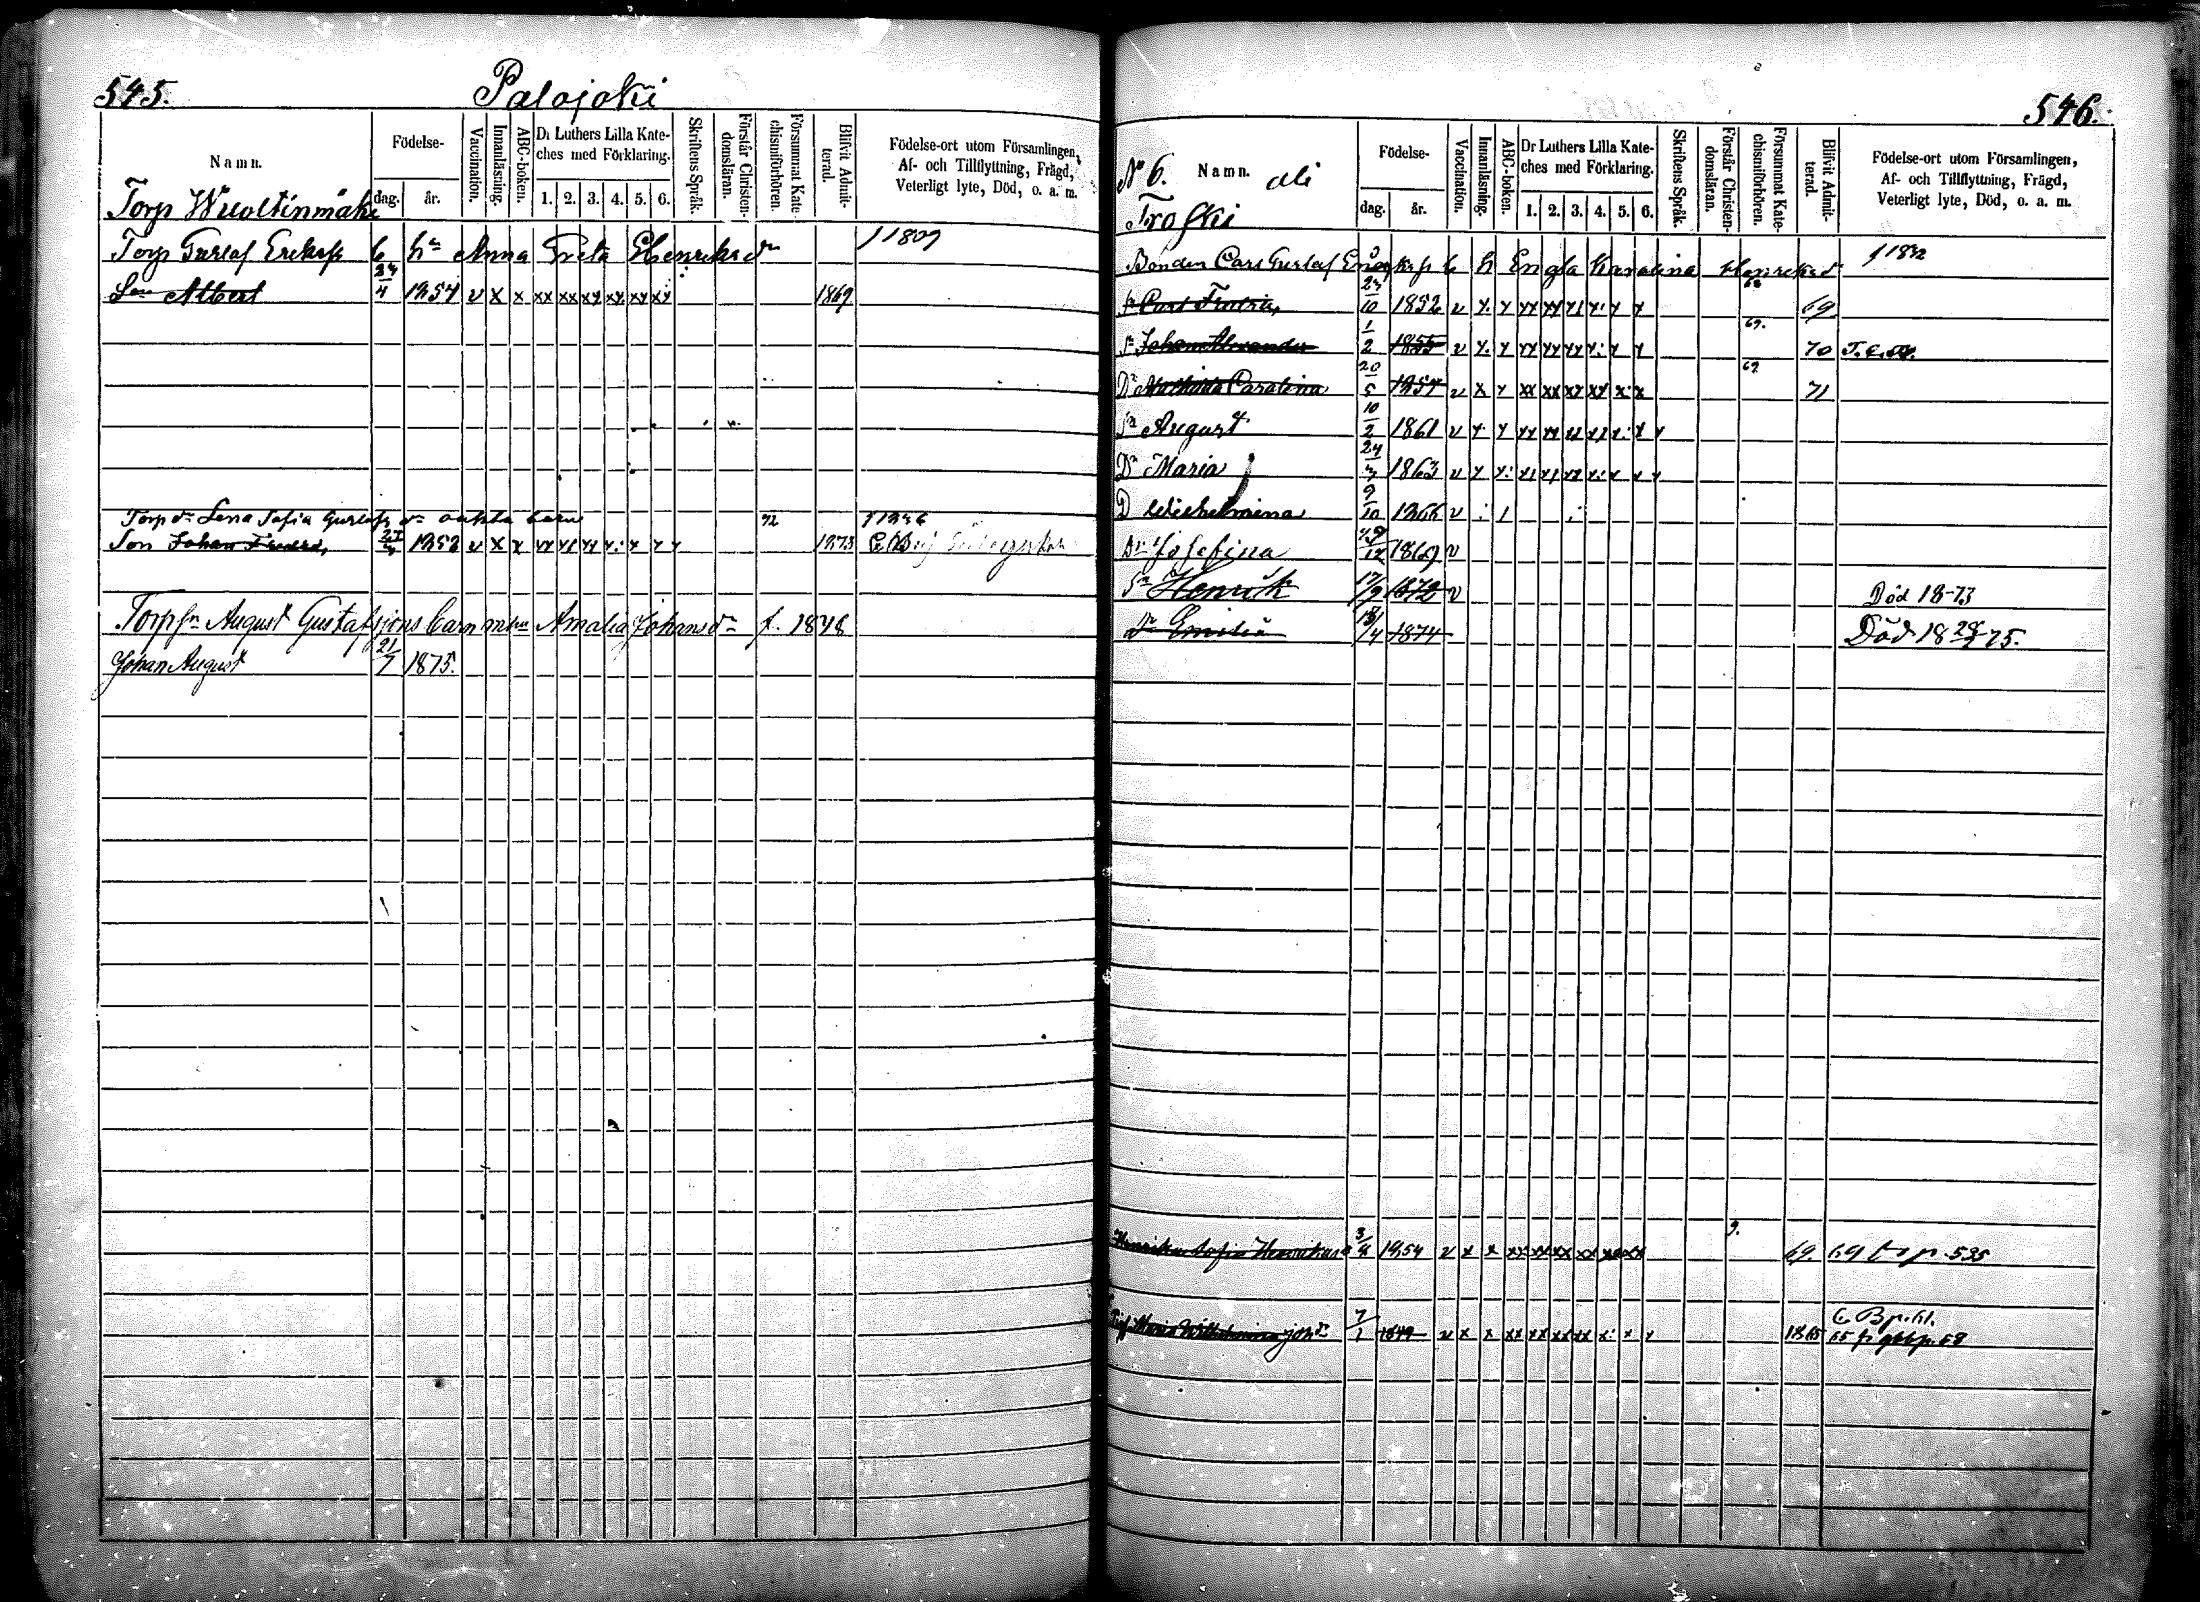 545.
Palojoki
Namn.
Födelse-
dag.
år.
Vaccination.
Innanläsning.
ABC-boken.
Dr Luthers Lilla Kate-
ches med Förklaring.
1. 2. 3. 4. 5. 6.
Skriftens Språk.
Förstår Christen-
domsläran.
Försummat Kate-
chismiförhören.
Blifvit Admit-
terad.
Födelse-ort utom Församlingen,
Af- och Tillflyttning, Frägd,
Veterligt lyte, Död, o. a. m.
Torp Wuoltinmäki
Torp Gustaf Eriksss b hn Anna Greta Henriksdn f 1809
Son Albert 24/4 1857 v x x xx xx xx xx xx xx 1869
Torp dr Lena Sofia Gustafs dr oäkta barn 72 f 1826
Son Johan Fredrik 1852 v x x xx xx xx x: x x x 1873
Torpsn August Gustafssons barn m hu Amalia Johansdr f. 1848
Johan August 21/7 1875.
546.
No 6.
Namn.
ali
Födelse-
dag.
år.
Vaccination.
Innanläsning.
ABC-boken.
Dr Luthers Lilla Kate-
ches med Förklaring.
1. 2. 3. 4. 5. 6.
Skriftens Språk.
Förstår Christen-
domsläran.
Försummat Kate-
chismiförhören.
Blifvit Admit-
terad.
Födelse-ort utom Församlingen,
Af- och Tillflyttning, Frägd,
Veterligt lyte, Död, o. a. m.
Trofki
Bonden Carl Gustaf b h Engla Karolina Henriksd f 1832
Carl Fredrik 1852 v x. x xx xx xx x: x x 69
Sn Johan Alexander 1/2 1855 v x. x xx xx xx x: x x 69. 70
Dr Mathilda Carolina 20/5 1857 v x x xx xx xx xx x: x 69 71
Sn August 10/2 1861 v x. x xx xx xx xx x: x x
Dr Maria 1863 v x x: xx xx xx x: x x x
D Wilhelmina 9/10 1866 v
Dr Josefina 1869 v
Sn Henrik 17/9 1872 v Död 18-73
Dr Emilia 1874 Död 18 28/3 75.
9.
Henrika Sofia 3/8 1854 v x x xx xx xx xx xx xx 69. 69 t o p 535
Maria Wilhelmina 7/1 1849 v x x xx xx xx xx x: x x 1865